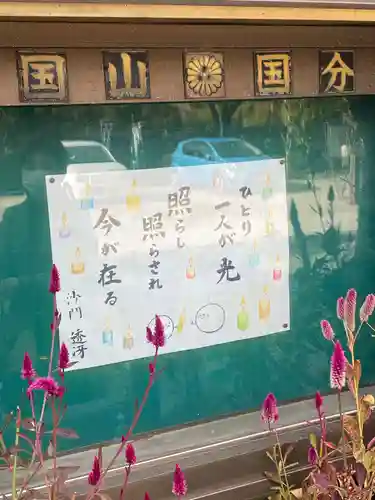 国山 国分
ひとり
一人が 光
照らし
照らされ
今が在る
沙門 透冴